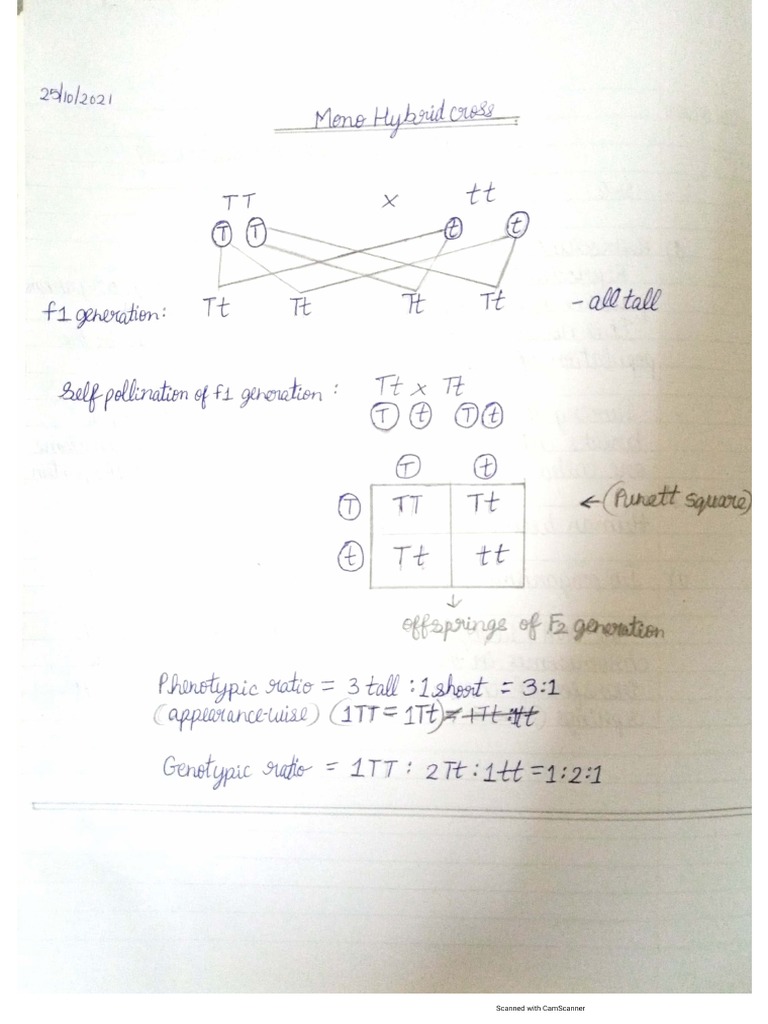 25/10/2021
Mono Hybrid cross
TT x tt
T T t t
f1 generation: Tt Tt Tt Tt - all tall
Self pollination of f1 generation : Tt x Tt
T t T t
T t
T TT Tt ← (Punett square)
t Tt tt
↓
offsprings of F2 generation
Phenotypic ratio = 3 tall : 1 short = 3:1
(appearance-wise) (1TT = 1Tt) = 1Tt : tt
Genotypic ratio = 1TT : 2Tt : 1tt = 1:2:1
Scanned with CamScanner